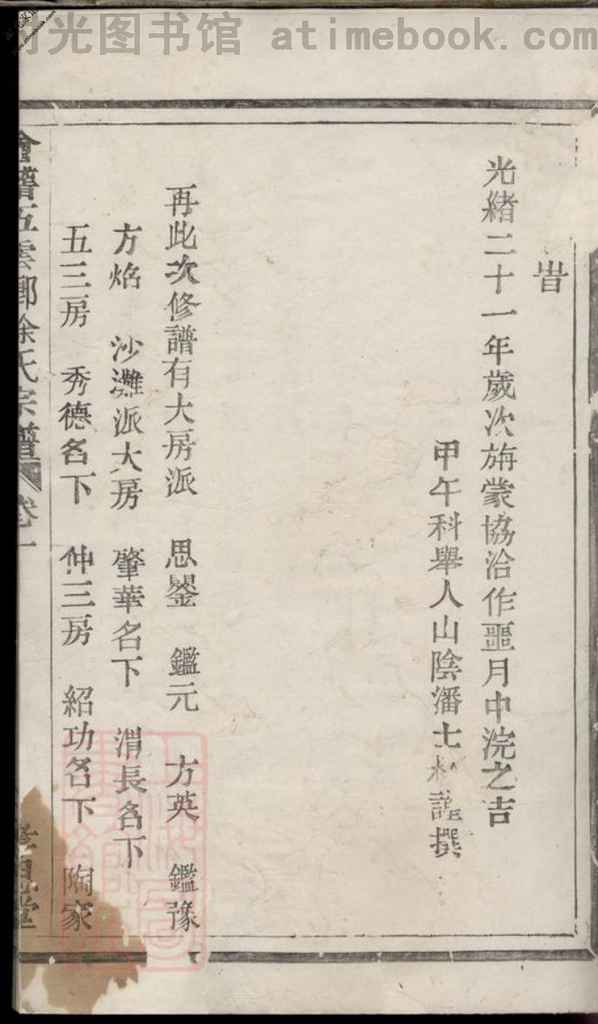 时光图书馆 atimebook.com
旹
光緒二十一年歲次旃蒙協洽作噩月中浣之吉
甲午科舉人山陰潘士 謹撰
再此次修譜有大房派 思鋆 鑑元 方英 鑑豫
方焰 沙灘派大房 肇華名下 渭長名下
五三房 秀德名下 仲三房 紹功名下 陶家
會稽五雲鄉徐氏宗譜 卷一
堂